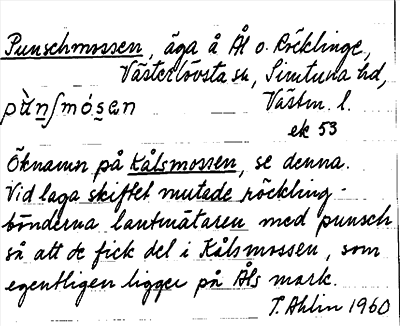 Punschmossen, äga å Ål o. Röcklinge,
Västerlövsta sn, Simtuna hd,
pùn̲ʃmós̲an Västm. l.
ek 53
Öknamn på Kålsmossen, se denna.
Vid laga skiftet mutade röckling-
bönderna lantmätaren med punsch
så att de fick del i Kålsmossen, som
egentligen ligger på Åls mark.
T. Ahlin 1960